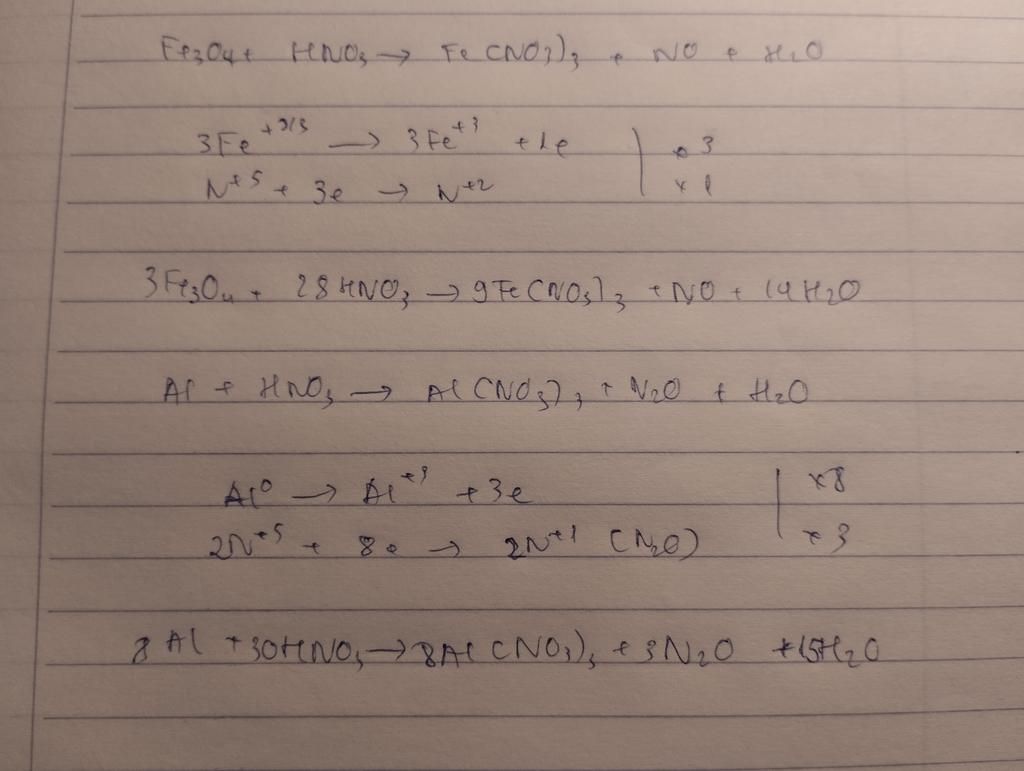 Fe₃O₄ + HNO₃ → Fe(NO₃)₃ + NO + H₂O
3Fe⁺⁸ᐟ³ → 3Fe⁺³ + 1e | × 3
N⁺⁵ + 3e → N⁺² | × 1
3Fe₃O₄ + 28HNO₃ → 9Fe(NO₃)₃ + NO + 14H₂O
Al + HNO₃ → Al(NO₃)₃ + N₂O + H₂O
Al⁰ → Al⁺³ + 3e | ×8
2N⁺⁵ + 8e → 2N⁺¹ (N₂O) | × 3
8Al + 30HNO₃ → 8Al(NO₃)₃ + 3N₂O + 15H₂O